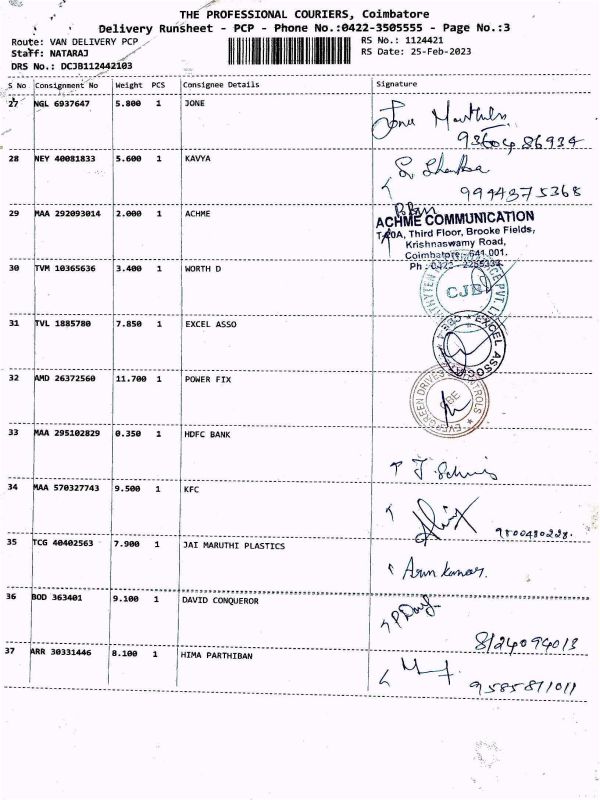 THE PROFESSIONAL COURIERS, Coimbatore
Delivery Runsheet - PCP - Phone No.:0422-3505555 - Page No.:3
Route: VAN DELIVERY PCP
Staff: NATARAJ
DRS No.: DCJB112442103
RS No.: 1124421
RS Date: 25-Feb-2023
S No Consignment No Weight PCS Consignee Details Signature
27 NGL 6937647 5.800 1 JONE
93604 86934
28 NEY 40081833 5.600 1 KAVYA
9944375368
29 MAA 292093014 2.000 1 ACHME
ACHME COMMUNICATION
Third Floor, Brooke Fields,
Krishnaswamy Road,
Coimbatore - 641 001.
Ph : 0422 - 2255334
30 TVM 10365636 3.400 1 WORTH D
CJB
31 TVL 1885780 7.850 1 EXCEL ASSO
EXCEL ASSOCIATES * CBE *
32 AMD 26372560 11.700 1 POWER FIX
EVERGREEN DRIVES CONTROLS
CBE
33 MAA 295102829 0.350 1 HDFC BANK
34 MAA 570327743 9.500 1 KFC
9800480228.
35 TCG 40402563 7.900 1 JAI MARUTHI PLASTICS
Arun Kumar.
36 BOD 363401 9.100 1 DAVID CONQUEROR
8124094013
37 ARR 30331446 8.100 1 HIMA PARTHIBAN
9585811011